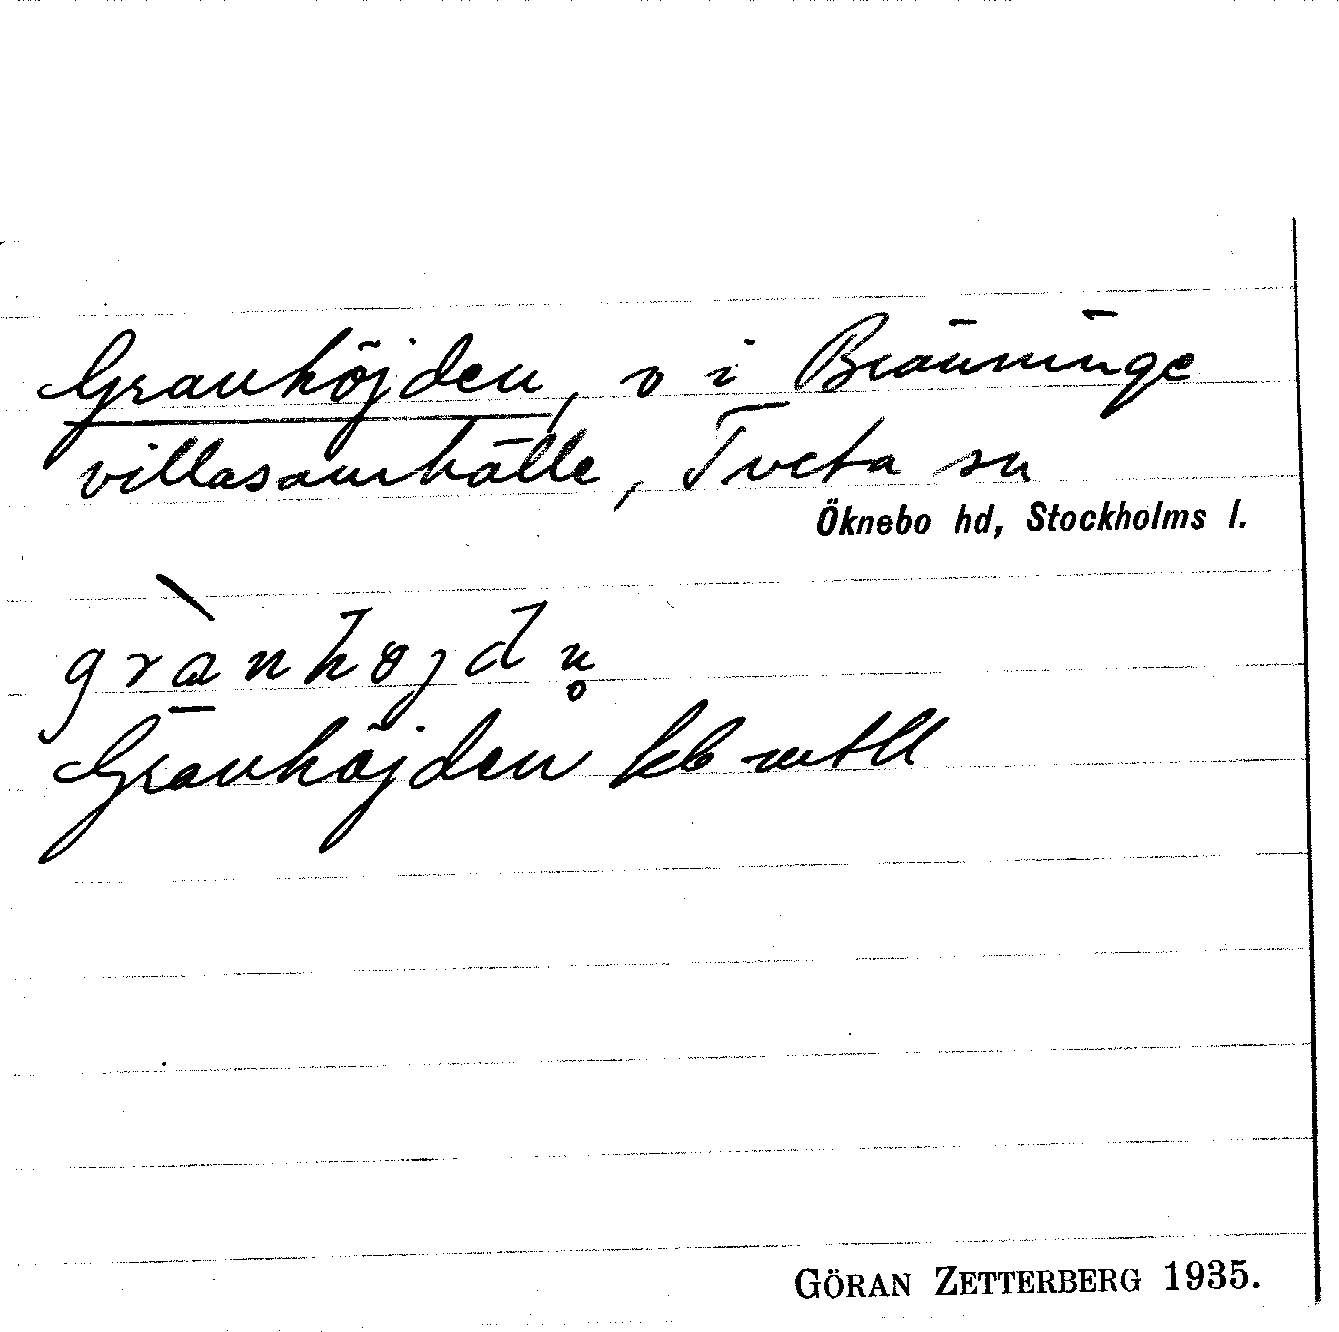 Granhöjden, v i Bränninge
villasamhälle, Tveta sn
Öknebo hd, Stockholms l.
grànhøjdn̥
Granhöjden kb mtll
GÖRAN ZETTERBERG 1935.